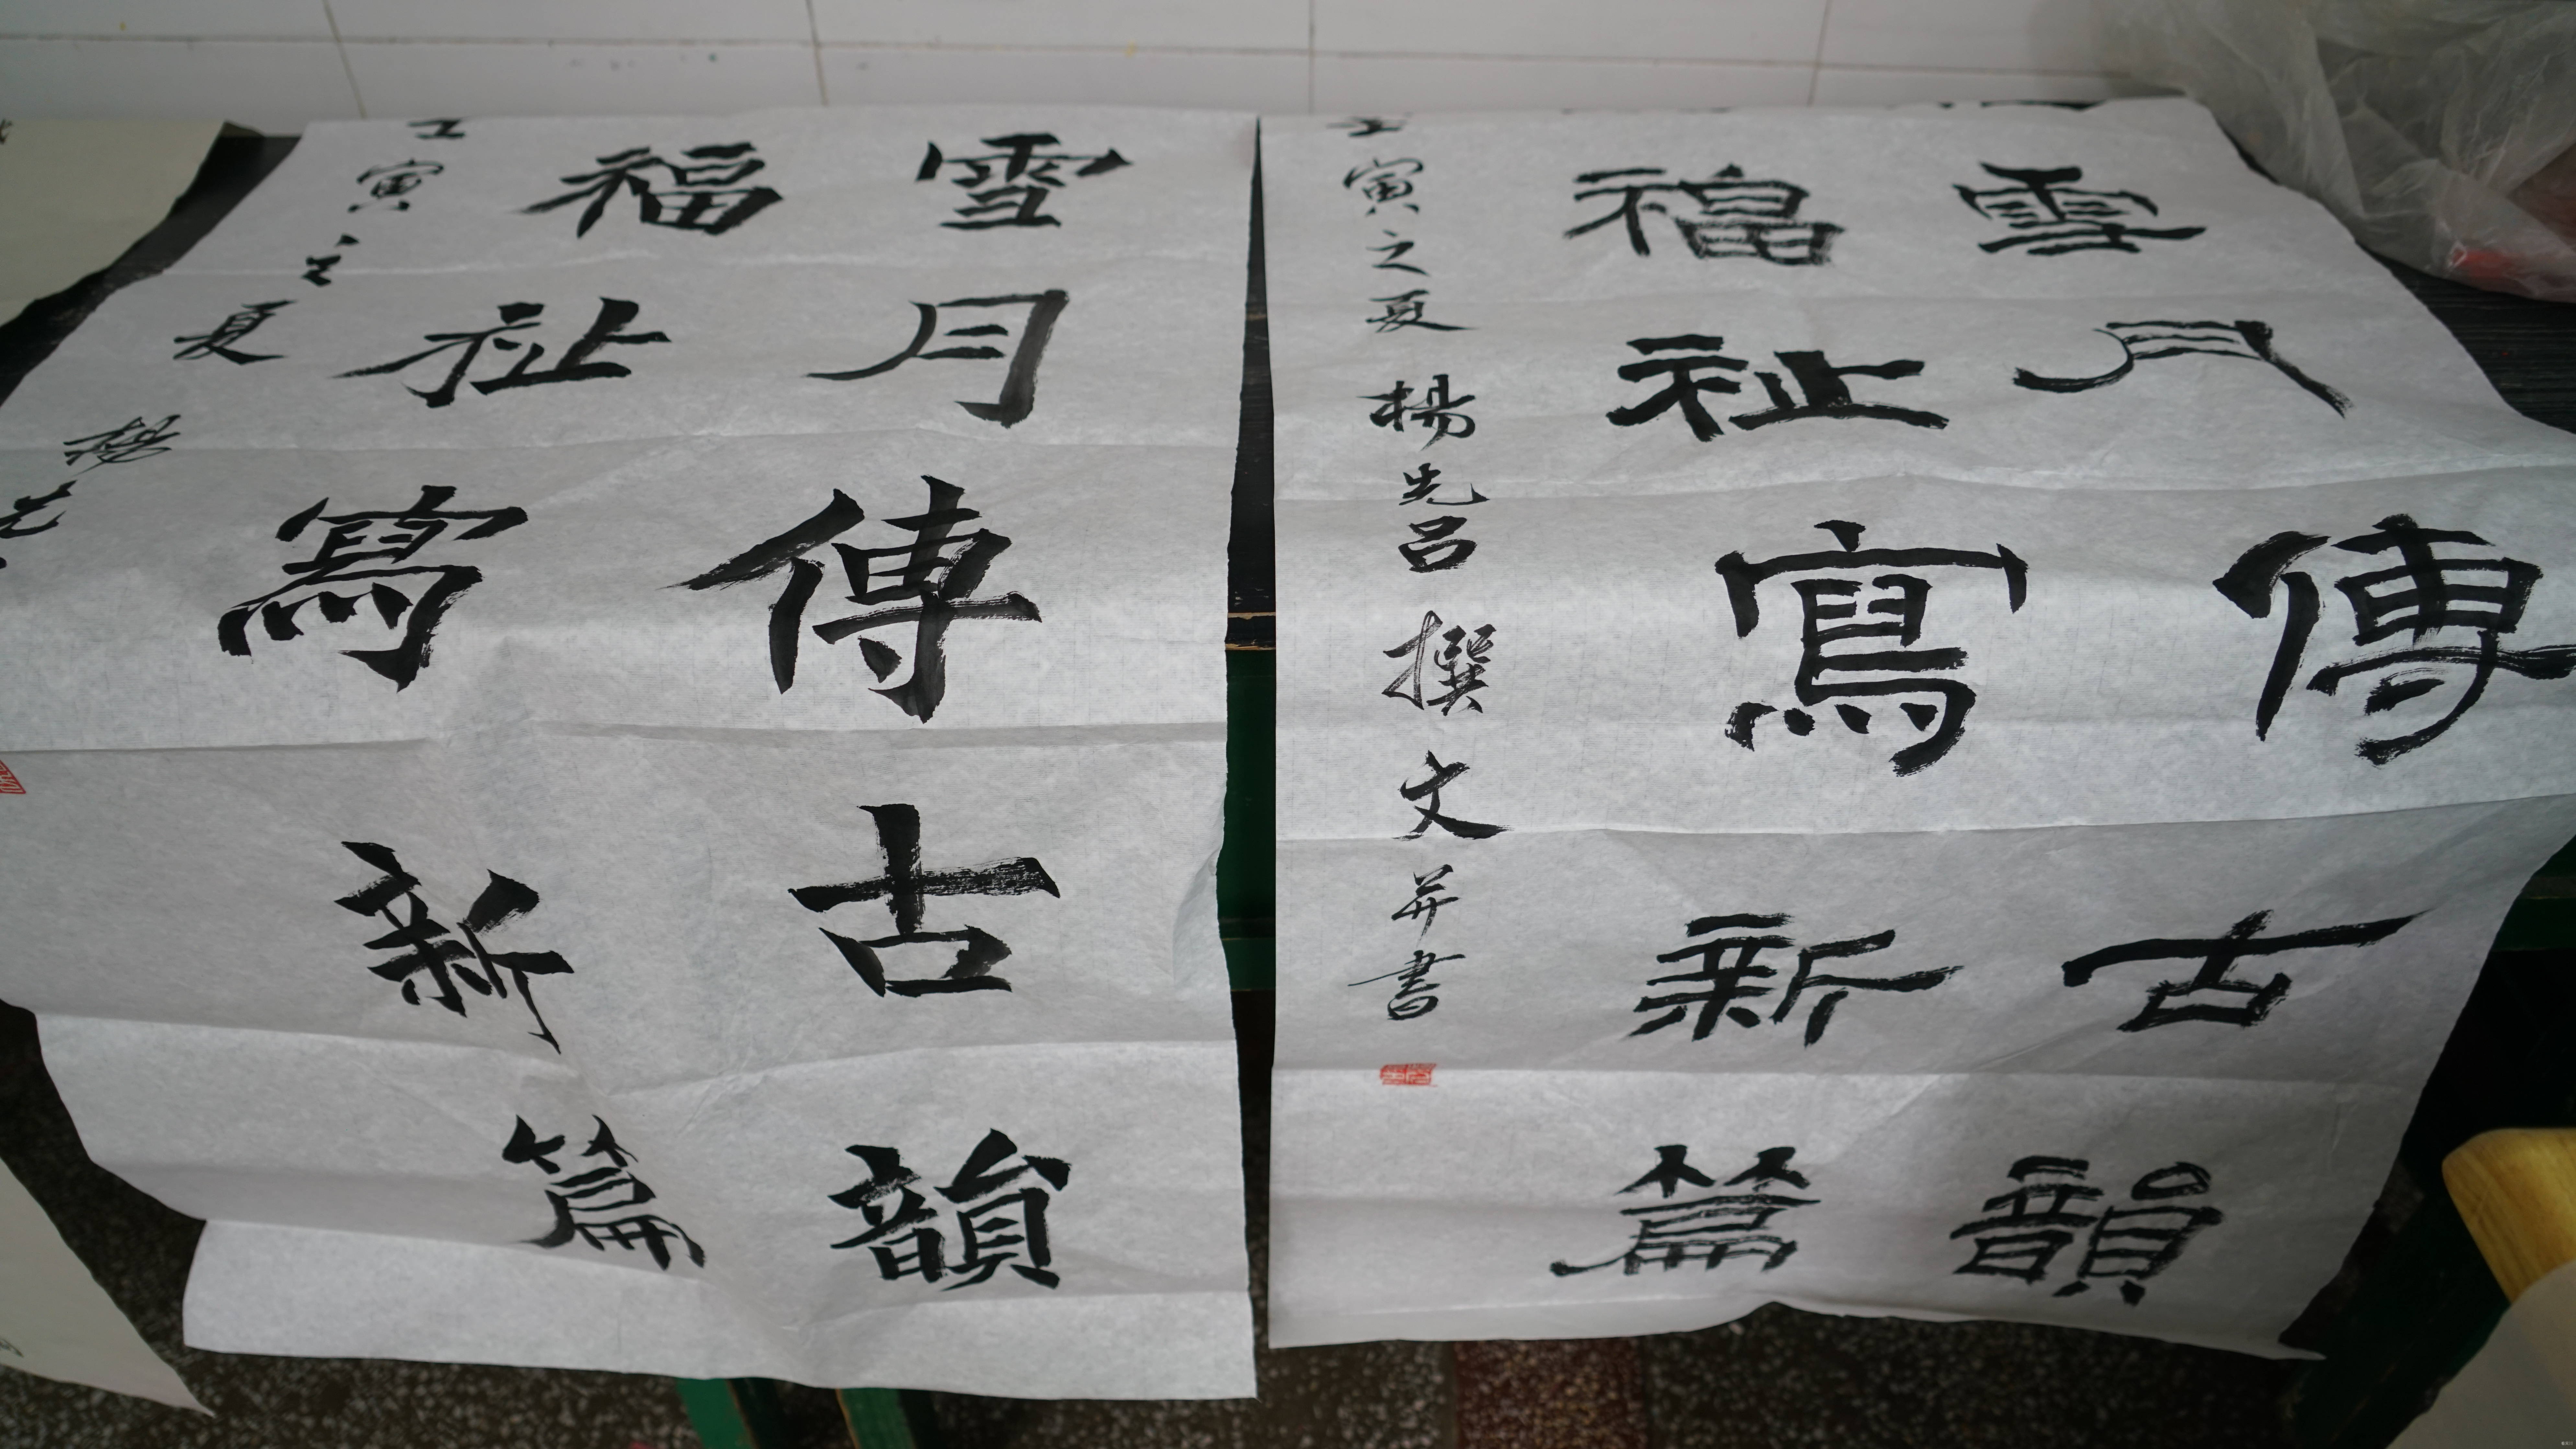 雪月傳古韻
福祉寫新篇
壬寅之夏楊先呂撰文并書
雪月傳古韻
福祉寫新篇
壬寅之夏楊先